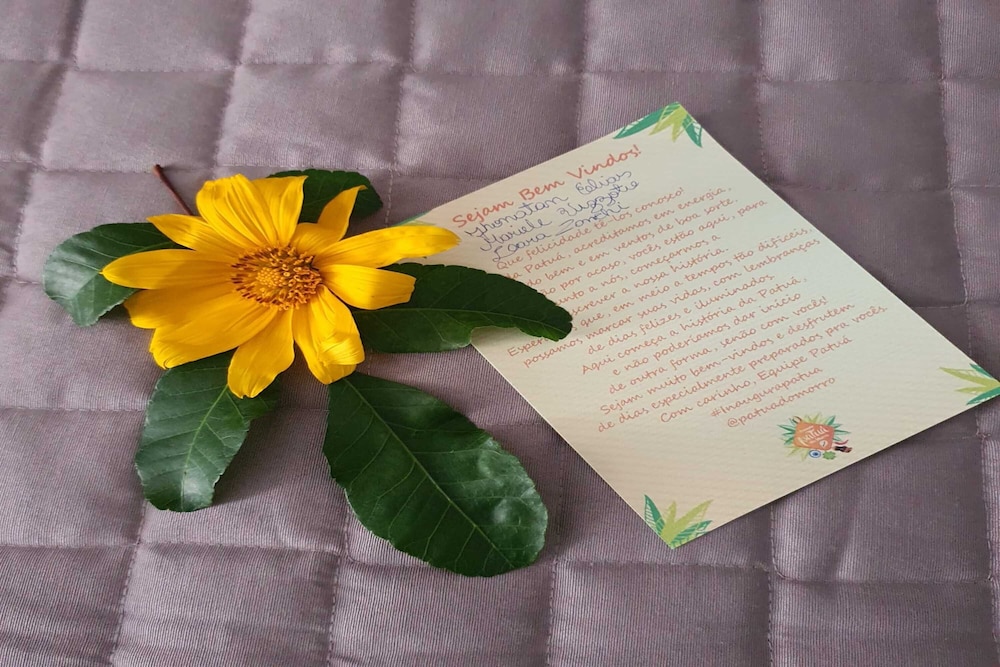 Sejam Bem Vindos!
Jhonatan Elias
Mariele
Loara
Que felicidade tê-los, conosco!
Patuá, acreditamos em energia,
do bem e em ventos de boa sorte.
por acaso, vocês estão aqui, para
junto a nós, começarmos a
escrever a nossa história.
que, em meio a tempos tão difíceis,
possamos marcar suas vidas, com lembranças
de dias felizes e iluminados.
Aqui começa a história da Patuá,
e não poderíamos dar início
de outra forma, senão com vocês!
Sejam muito bem-vindos e desfrutem
de dias especialmente preparados pra vocês
Com carinho, Equipe Patuá
#Inaugurapatua
@patuadomorro
Patuá